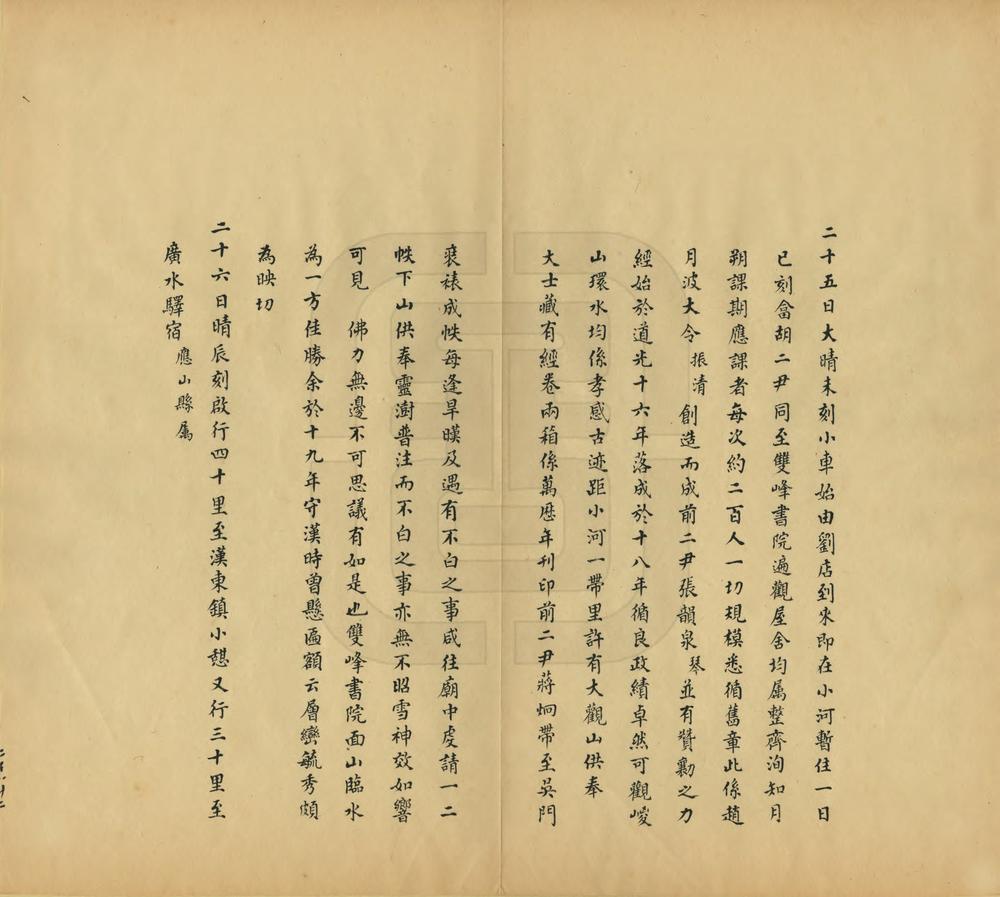 二十五日大晴未刻小車始由劉店到來即在小河暫住一日
巳刻畣胡二尹同至雙峰書院遍觀屋舍均属整齊洵知月
朔課期應課者每次約二百人一切規模悉循舊章此係趙
月波大令振清創造而成前二尹張韻泉琴並有贊勷之力
經始於道光十六年落成於十八年循良政績卓然可觀峻
山環水均係孝感古迹距小河一帶里許有大觀山供奉
大士藏有經卷兩箱係萬歷年刊印前二尹蔣炯帶至吳門
裒裱成帙每逢旱暵及遇有不白之事咸往廟中虔請一二
帙下山供奉靈澍普注而不白之事亦無不昭雪神效如響
可見 佛力無邊不可思議有如是也雙峰書院面山臨水
為一方佳勝余於十九年守漢時曾懸匾額云層巒毓秀頗
為映切
二十六日晴辰刻啟行四十里至漢東鎮小憩又行三十里至
廣水驛宿應山縣属